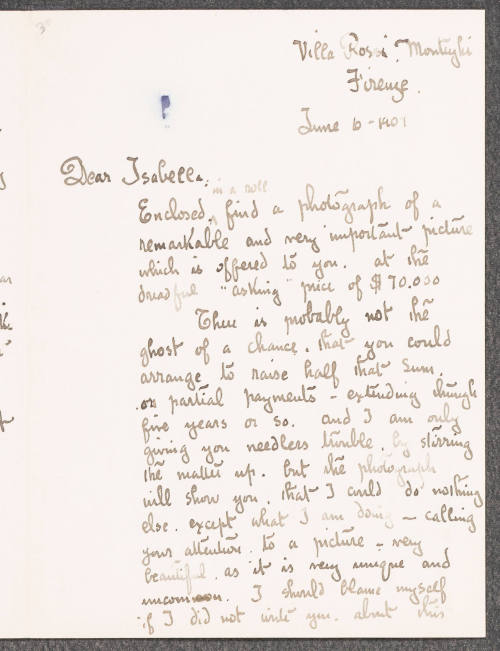 3
Villa Rossi. Montughi
Firenze.
June 6 - 1901
Dear Isabella,
in a roll
Enclosed, find a photograph of a
remarkable and very important picture
which is offered to you. at the
dreadful "asking" price of $70.000
There is probably not the
ghost of a chance. that you could
arrange to raise half that Sum.
on partial payments - extending though
five years or so. and I am only
giving you needless trouble by stirring
the matter up. but the photograph
will show you. that I could do nothing
else. except what I am doing - calling
your attention. to a picture - very
beautiful. as it is very unique and
uncommon. I should blame myself
if I did not write you. about this